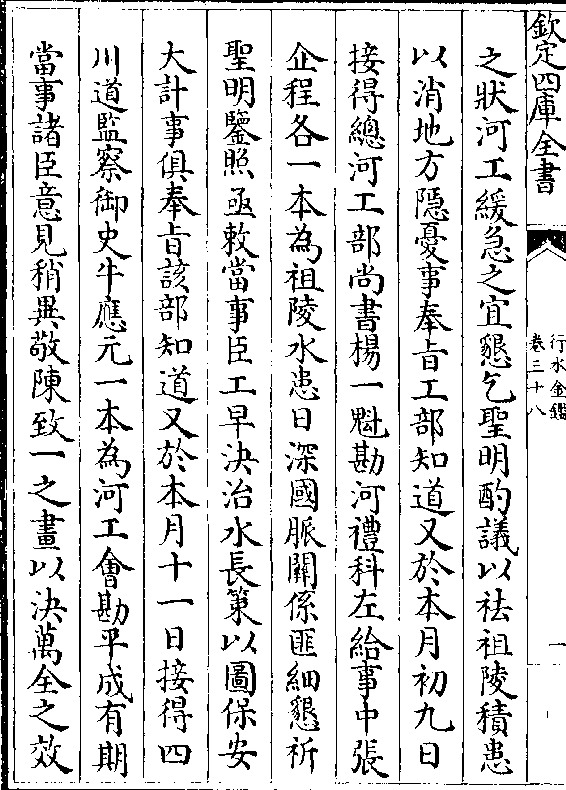 欽定四庫全書
行水金鑑
卷三十八
一
之狀河工緩急之宜懇乞聖明酌議以祛祖陵積患
以消地方隱憂事奉旨工部知道又於本月初九日
接得總河工部尚書楊一魁勘河禮科左給事中張
企程各一本為祖陵水患日深國脈關係匪細懇祈
聖明鑒照亟敕當事臣工早決治水長策以圖保安
大計事俱奉旨該部知道又於本月十一日接得四
川道監察御史牛應元一本為河工會勘平成有期
當事諸臣意見稍異敬陳致一之畫以決萬全之效